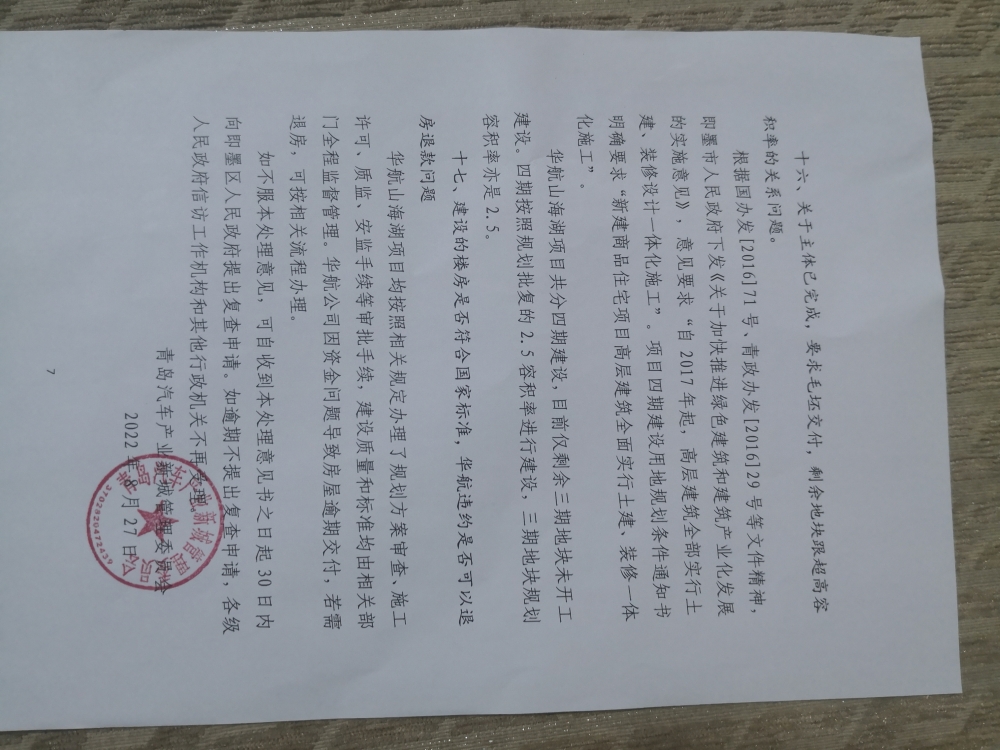 十六、关于主体已完成，要求毛坯交付，剩余地块跟超高容
积率的关系问题。
根据国办发[2016]71号、青政办发[2016]29号等文件精神，
即墨市人民政府下发《关于加快推进绿色建筑和建筑产业化发展
的实施意见》，意见要求“自2017年起，高层建筑全部实行土
建、装修设计一体化施工”。项目四期建设用地规划条件通知书
明确要求“新建商品住宅项目高层建筑全面实行土建、装修一体
化施工”。
华航山海湖项目共分四期建设，目前仅剩余三期地块未开工
建设。四期按照规划批复的2.5容积率进行建设，三期地块规划
容积率亦是2.5。
十七、建设的楼房是否符合国家标准，华航违约是否可以退
房退款问题
华航山海湖项目均按照相关规定办理了规划方案审查、施工
许可、质监、安监手续等审批手续，建设质量和标准均由相关部
门全程监督管理。华航公司因资金问题导致房屋逾期交付，若需
退房，可按相关流程办理。
如不服本处理意见，可自收到本处理意见书之日起30日内
向即墨区人民政府提出复查申请。如逾期不提出复查申请，各级
人民政府信访工作机构和其他行政机关不再受理。
青岛汽车产业新城管理委员会
2022年8月27日
7